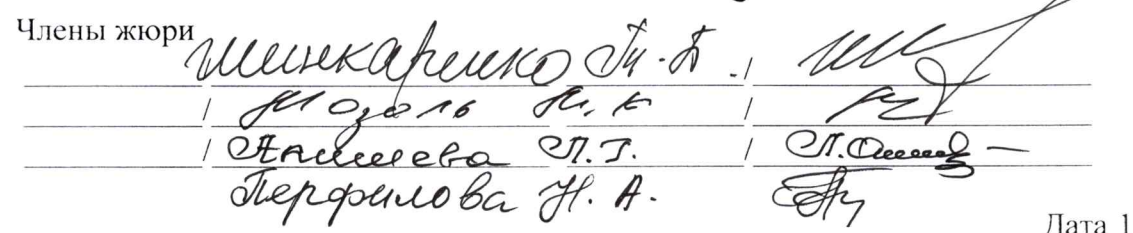 Члены жюри
Шинкаренко Т. Б. /
/ Мозоль Н. К /
/ Анишева Л. Г. /
Перфилова Н. А.
Дата 1